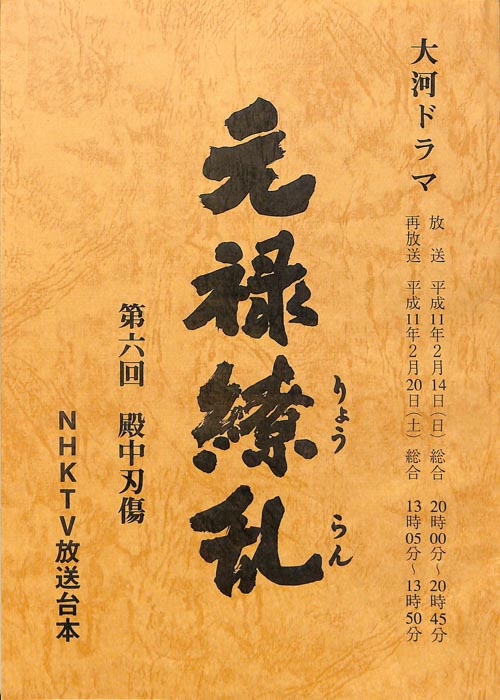 大河ドラマ
放　送　平成11年2月14日(日)総合　20時00分～20時45分
再放送　平成11年2月20日(土)総合　13時05分～13時50分
元禄繚乱
りょう　らん
第六回　殿中刃傷
NHKTV放送台本